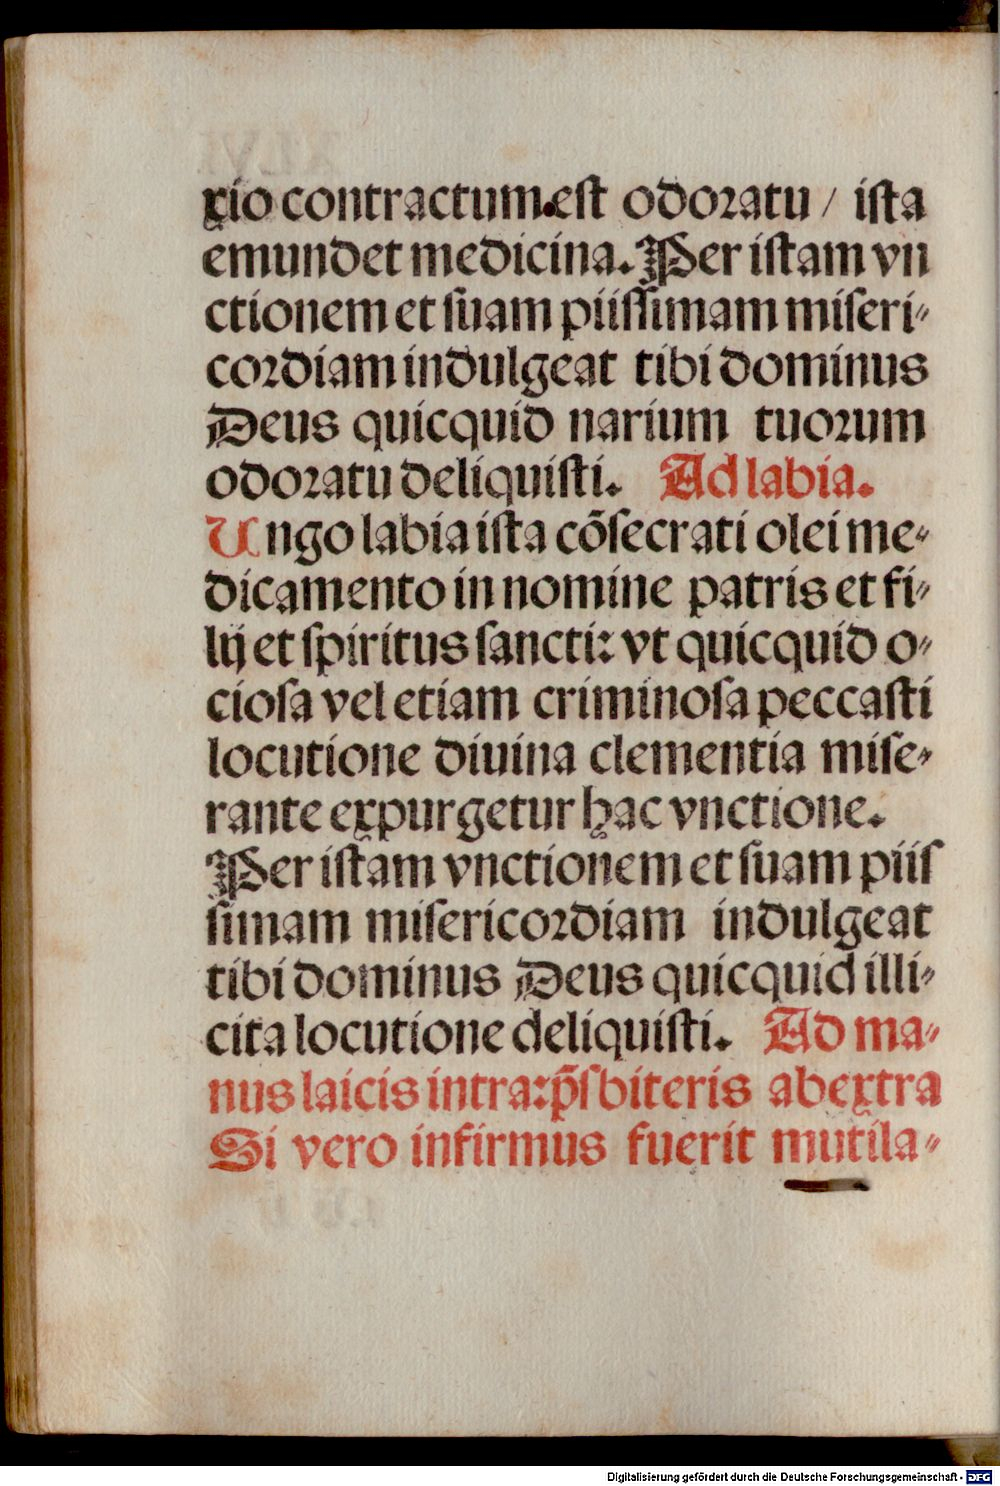 xio contractum.est odoratu / ista
emundet medicina. Per istam vn
ctionem et suam piissimam miseri-
cordiam indulgeat tibi dominus
Deus quicquid narium tuorum
odoratu deliquisti. Ad labia.
Ungo labia ista cõsecrati olei me-
dicamento in nomine patris et fi-
lij et spiritus sancti: vt quicquid o-
ciosa vel etiam criminosa peccasti
locutione diuina clementia mise-
rante expurgetur hac vnctione.
Per istam vnctionem et suam piis
simam misericordiam indulgeat
tibi dominus Deus quicquid illi-
cita locutione deliquisti. Ad ma-
nus laicis intra: p̃sbiteris abextra
Si vero infirmus fuerit mutila-
Digitalisierung gefördert durch die Deutsche Forschungsgemeinschaft - DFG